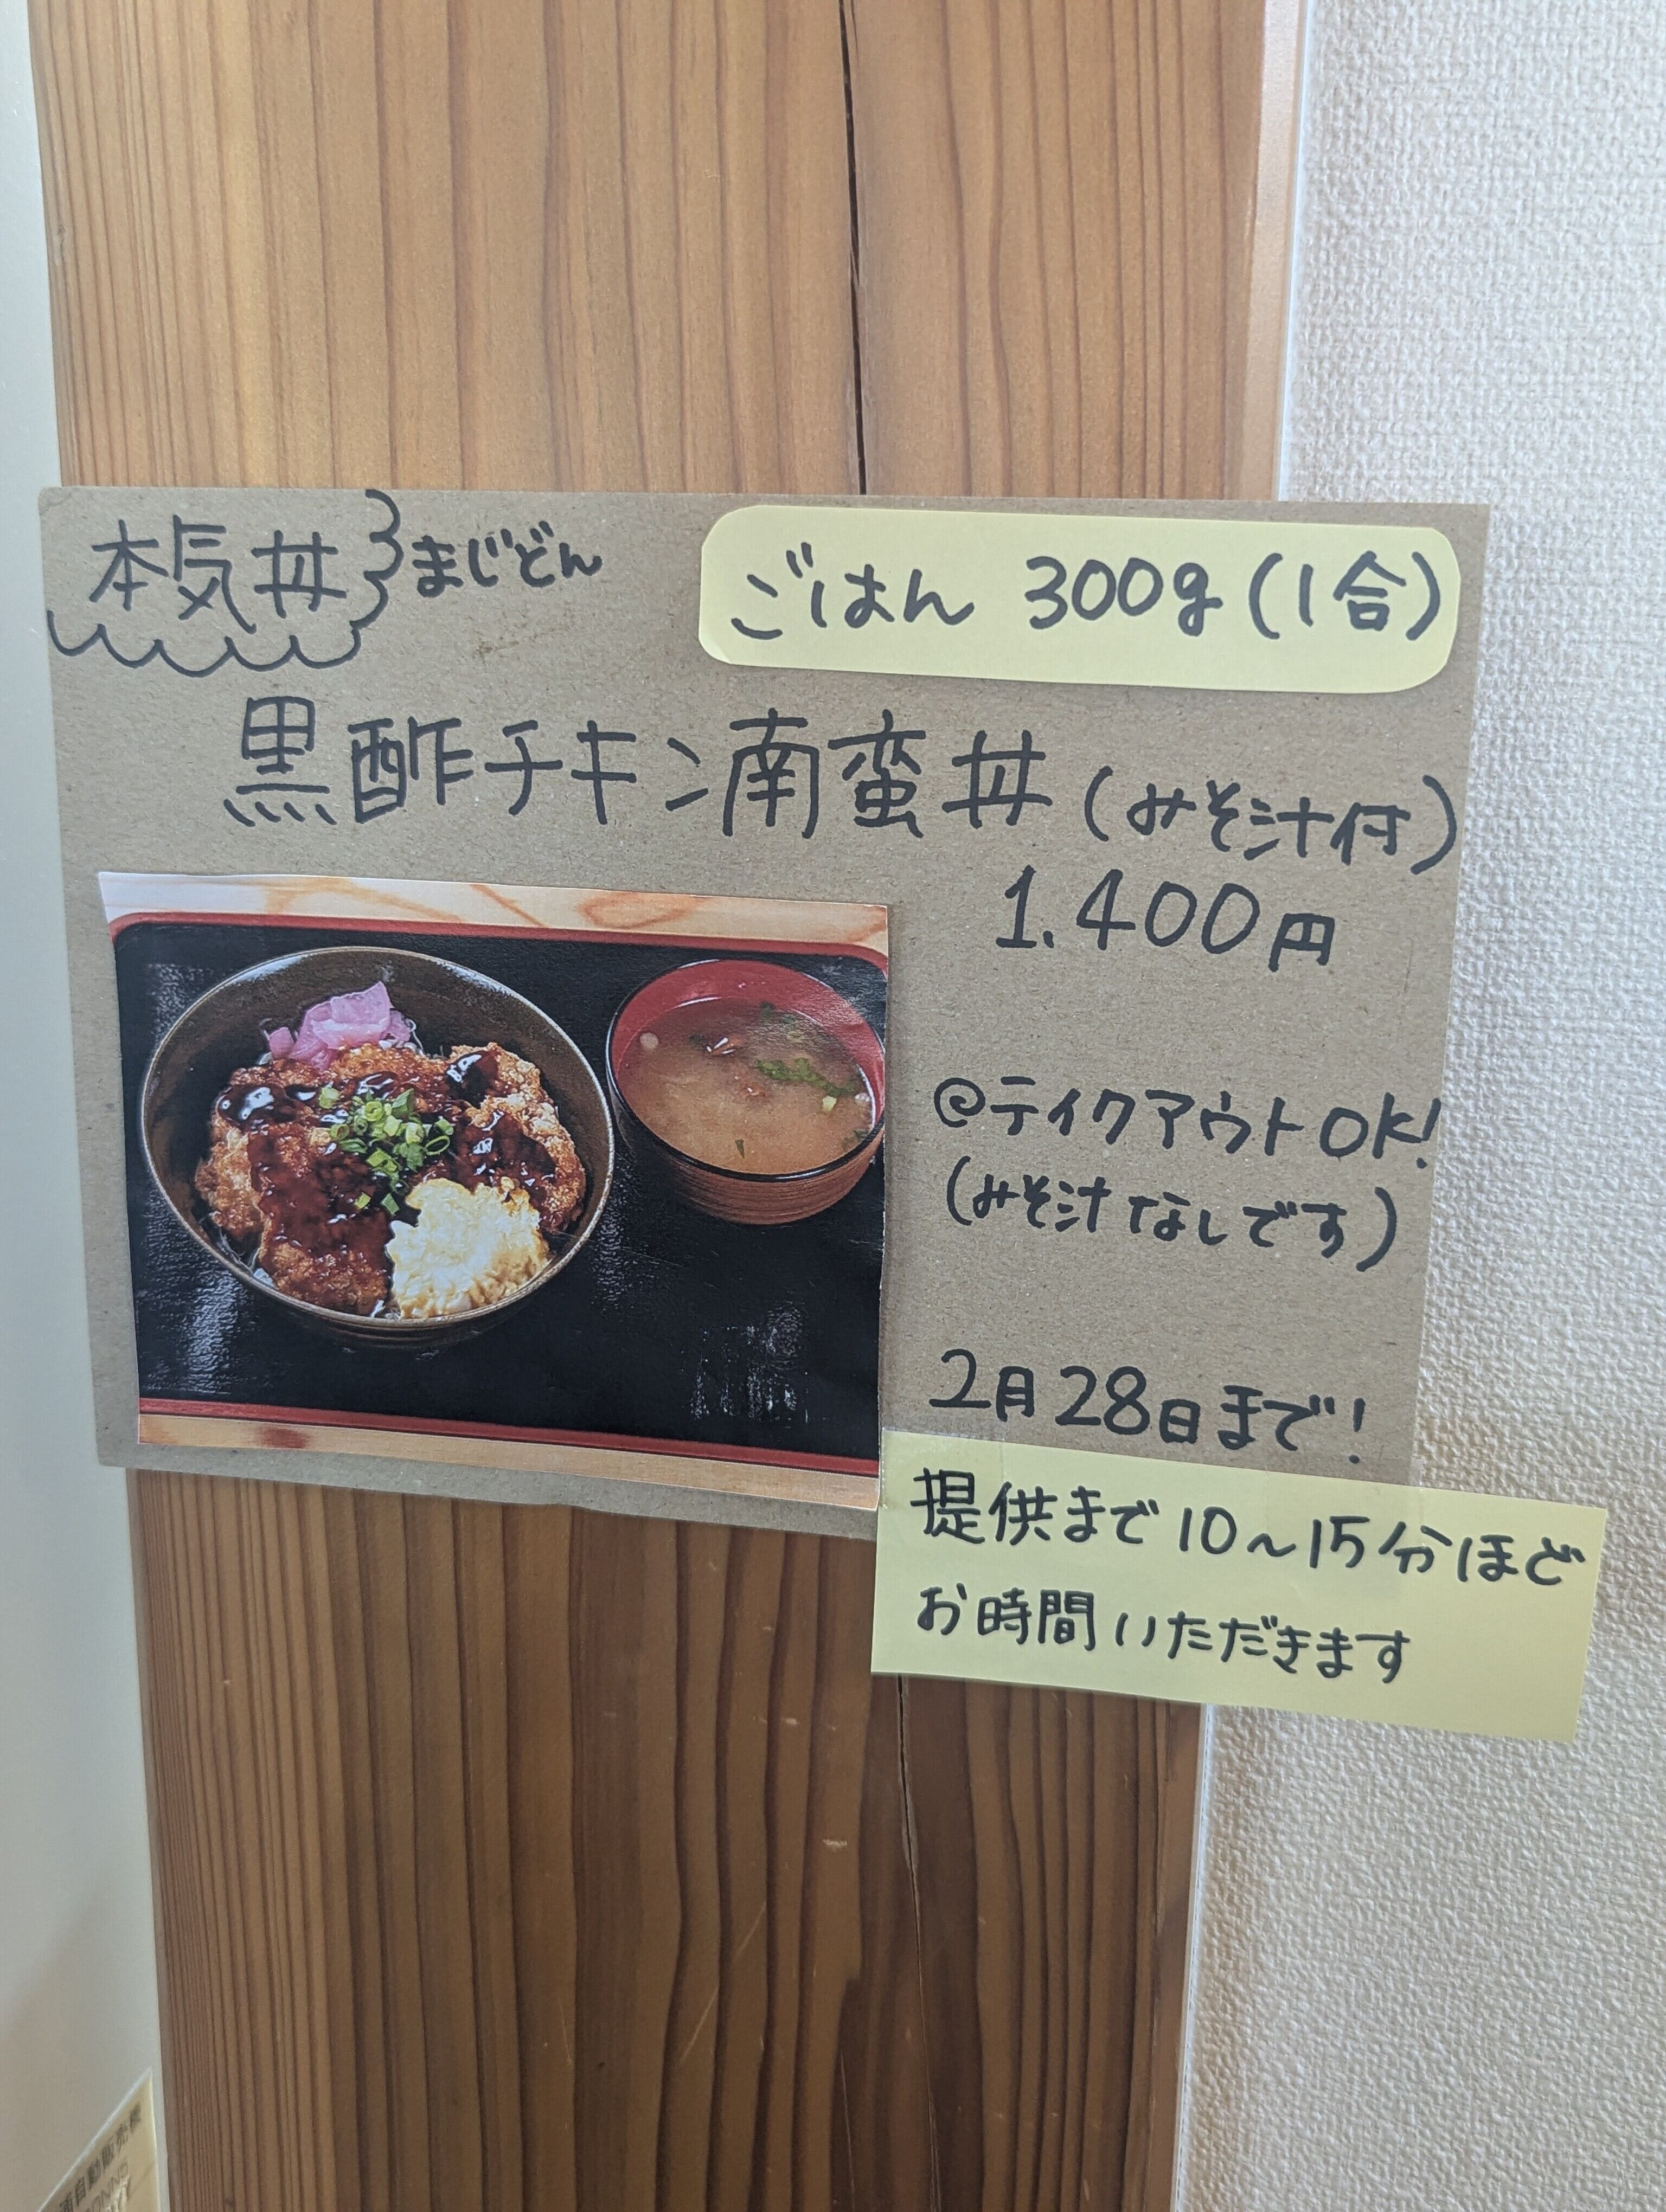 本気丼 まじどん
ごはん 300g(1合)
黒酢チキン南蛮丼(みそ汁付)
1.400円
@テイクアウトOK!
(みそ汁なしです)
2月28日まで!
提供まで10~15分ほど
お時間いただきます